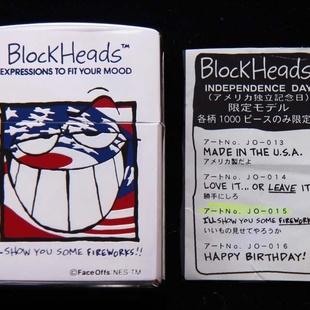 BLOCKHEADS™
EXPRESSIONS TO FIT YOUR MOOD
SHOW YOU SOME FIREWORKS!!
©FaceOffs NES ™
BLOCKHEADS
INDEPENDENCE DAY
(アメリカ独立記念日)
限定モデル
各柄1000ピースのみ限定
アートNo. JO-013
MADE IN THE U.S.A.
アメリカ製だよ
アートNo. JO-014
LOVE IT...OR LEAVE IT
勝手にしろ
アートNo. JO-015
I'LL SHOW YOU SOME FIREWORKS
いいもの見せてやろうか
アートNo. JO-016
HAPPY BIRTHDAY!